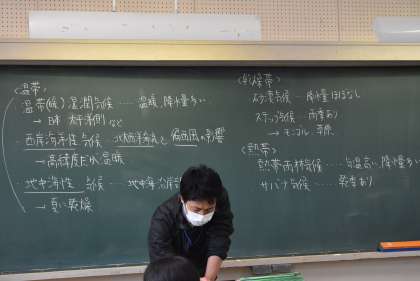 〈温帯〉
温帯(暖)湿潤気候 …… 温暖、降水量多い
→ 日本 太平洋側など
西岸海洋性気候 … 北大西洋海流と偏西風の影響
→ 高緯度だが温暖
地中海性気候 …… 地中海沿岸
→ 夏に乾燥
〈乾燥帯〉
砂漠気候 … 降水量ほぼなし
ステップ気候 … 雨季あり
→ モンゴル 草原
〈熱帯〉
熱帯雨林気候 …… 気温高い、降水量多い
サバナ気候 …… 乾季あり